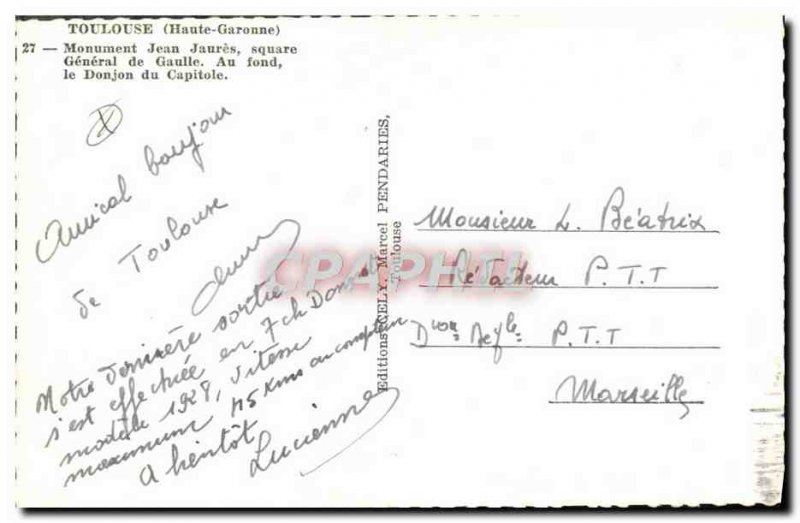 TOULOUSE (Haute-Garonne)
27 — Monument Jean Jaurès, square
Général de Gaulle. Au fond,
le Donjon du Capitole.
Amical boujour
de Toulouse
Notre dernière sortie
s'est effectuée en 7 ch
modèle 1928, vitesse
maximum 45 Kms au compteur
A bientôt
Lucienne
Editions CELY, Marcel PENDARIES,
Toulouse
Monsieur L. Béatrix
Rédacteur P.T.T
Dion Regle P.T.T
Marseille
CPAPHIL